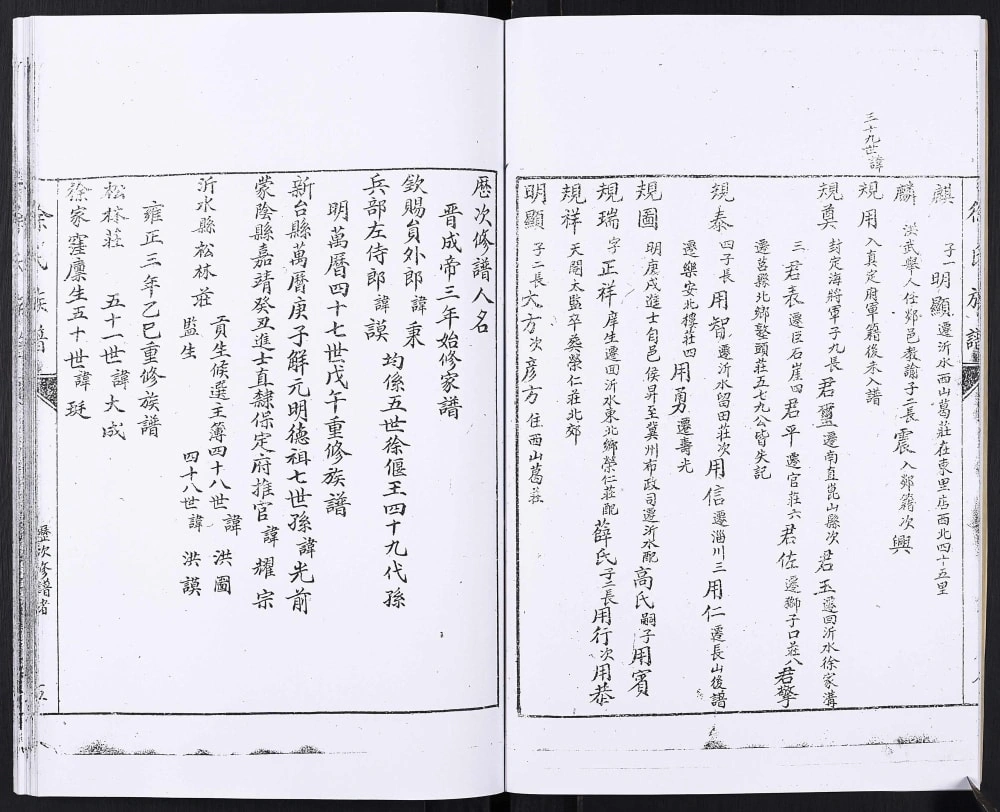 三十九世諱
徐氏族譜
麒 子一明顯遷沂水西山葛莊在東里店西北四十五里
麟 洪武舉人任鄒邑教諭子二長震入鄒籍次興
規用 入真定府軍籍後未入譜
規奠 封定海將軍子九長君璽遷南直崑山縣次君玉遷回沂水徐家溝
三君表遷臣石崖四君平遷官莊六君佐遷獅子口莊八君擎
遷莒縣北鄉墪頭莊五七九公皆失記
規泰 四子長用智遷沂水留田莊次用信遷淄川三用仁遷長山後譜
遷樂安北樓莊四用勇遷壽光
規圖 明庚戌進士自邑侯昇至冀州布政司遷沂水配高氏嗣子用賓
規瑞 字正祥庠生遷回沂水東北鄉榮仁莊配薛氏子二長用行次用恭
規祥 天閹太監卒葬榮仁莊北郊
明顯 子二長大方次彦方住西山葛莊
歷次修譜人名
晋成帝三年始修家譜
欽賜員外郎諱秉
均係五世徐偃王四十九代孫
兵部左侍郎諱謨
明萬曆四十七世戊午重修族譜
新台縣萬曆庚子解元明德祖七世孫諱光前
蒙陰縣嘉靖癸丑進士直隸保定府推官諱耀宗
貢生候選主簿四十八世諱洪圖
沂水縣松林莊
監生 四十八世諱洪謨
雍正三年乙巳重修族譜
松林莊 五十一世諱大成
徐家窪廩生五十世諱珽
徐氏族譜
歷次修譜諸
五